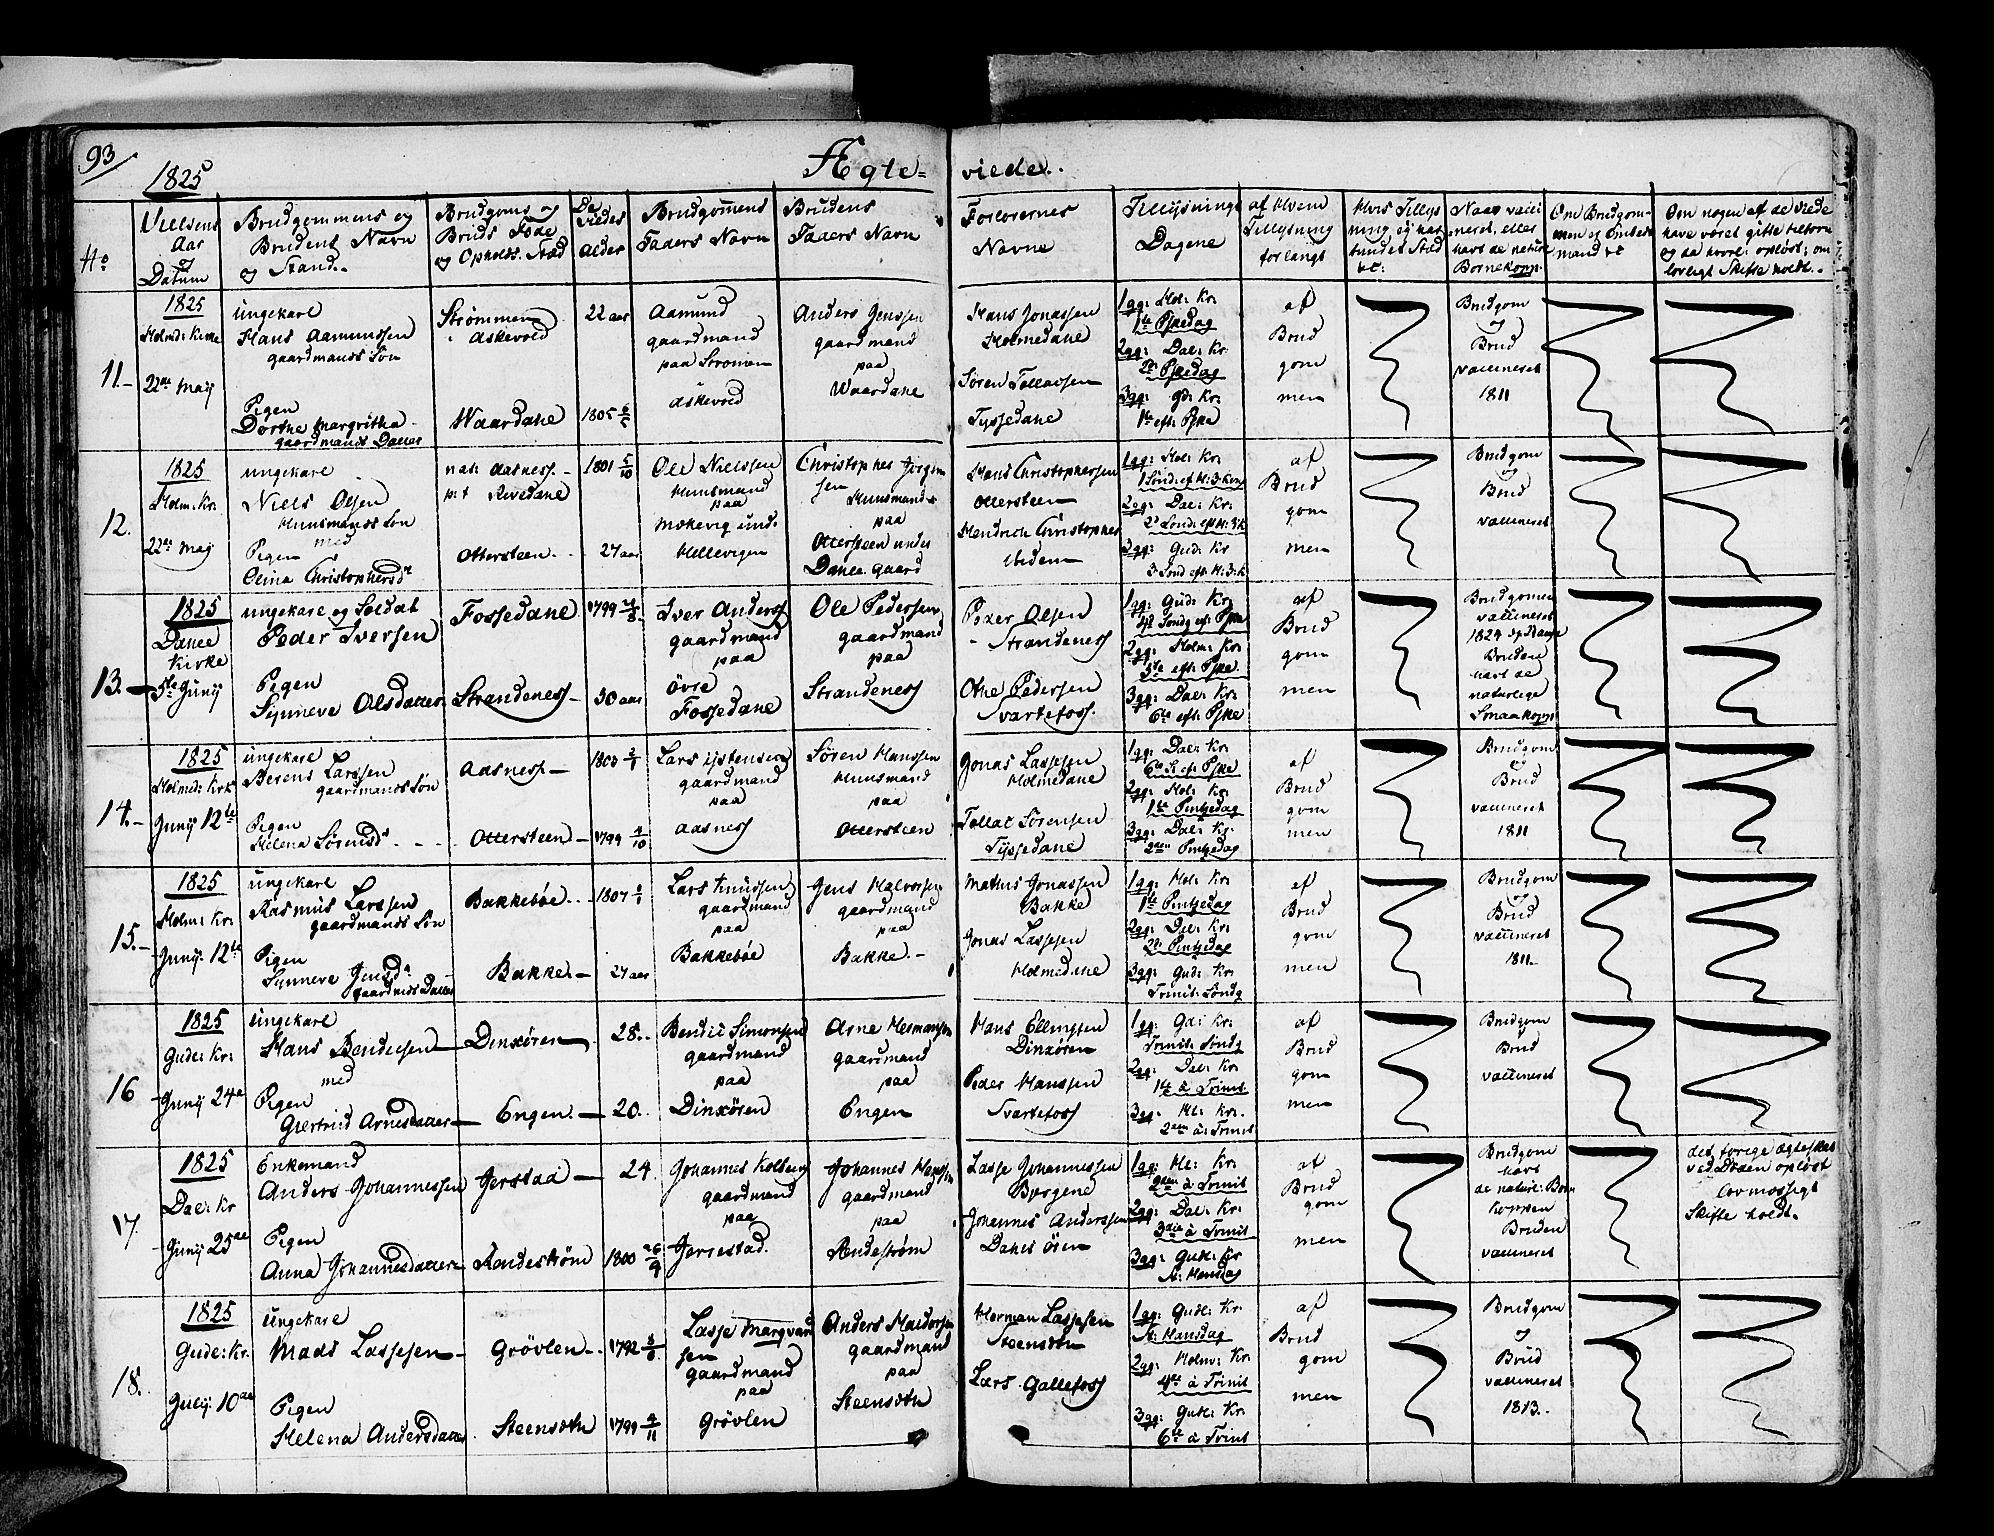 93
1825
Ægte=
viede.
No
Vielsens Aar og Datum
Brudgommens og Brudens Navn og Stand.
Brudgoms og Bruds Føde og Opholds. Stæd
De Viedes Alder
Brudgomens Faders Navn
Brudens Faders Navn
Forlovernes Navne
Tillysnings Dagene
af hvem Tillysning forlangt
Hvis Tillysning ej har fundet Stæd
Naar vacineret, eller havt de naturl Børnekopp.
Om Brudgommen er Embedsmand
Om nogen af de viede have været gifte tilforn og da hvorl: opløst; om lovligt Skifte holdt.
11.
1825
Holmd: Kirke
22de Maij
ungekarl
Hans Aamunssen
gaardmands Søn
Pigen
Dorthe Margritha
gaardmands Datter
Strømmen
i Askevold
Waardahe
22 aar
1805
Aamund
gaardmand
paa Strømmen
Askevold
Anders Jenssen
gaardmand
paa
Waardane
Hans Jonassen
Holmedane
Sören Tollacsen
Tyssedane
1gg: Hol: Kr:
1te Pskedag
2gg: Dal: Kr.
2de Pskedag
3gg: gd: Kr:
1te eft: Pske
af
Brud
gom
men
Brudgom
og
Brud
vaccineret
1811
12.
1825
Holm: Kr.
22de Maij
ungekarl
Niels Olsen
Huusmands Søn
med
Pigen
Olina Christophersdr
nat: Aasness.
p:t Rivedane
Ottersteen
1801 5/10
27 aar
Ole Nielssen
Huusmand
paa
Mækevig und.
Hellevigen
Christopher Jörgen
sen
Huusmand
paa
Ottersteen under
Dalee gaard
Hans Christophersen
Ottersteen
Hendrich Christophers
ibidem
1gg: Hol: Kr.
1 Sönd: eft H: 3 Kong
2gg: Dal: Kr.
2d Sönd: eft H: 3 K
3gg: Gud: Kr
3 Sönd eft: H: 3: K
af
Brud
gom
men
Brudgom
og
Brud
vaccineret
13.
1825
Dalee
Kirke
5te Junij
ungekarl og Soldat
Peder Iversen
Pigen
Synneve Olsdatter
Fossedane
Strandeness
1799
30 aar
Iver Anderss
gaardmand
paa
övre
Fossedane
Ole Pedersen
gaardmand
paa
Strandeness
Peder Olsen
Strandeness
Othe Pedersen
Svartefoss.
1gg: Gud: Kr:
4de Söndg ef: Pske
2gg: Holm: Kr:
5te eft: Pske.
3gg: Dal: Kr:
6te eft: Pske
af
Brud
gom
men
Brudgomen
vaccineret
1824
Bruden
havt de
naturlige
Smaakopp
14.
1825
Holmed: Krk
Junij 12te
ungekarl
Berens Larssen
gaardmands Søn
Pigen
Helena Sörensdr
Aasness
Ottersteen
1803
1799 4/10
Lars Estensen
gaardmand
paa
Aasness
Sören Hanssen
Huusmand
paa
Ottersteen
Jonas Lassesen
Holmedane
Tollac Sörensen
Tyssedane
1gg: Dal: Kr:
6te S: ef: Pske
2gg: Hol: Kr:
1te Pintzedag
3gg: Dal: Kr:
2den Pintzedag
af
Brud
gom
men
Brudgom
og
Brud
vaccineret
1811
15.
1825
Holm: Kr:
Junij 12te
ungekarl
Rasmus Larssen
gaardmands Søn
Pigen
Synneve Jensdr
gaardmds Datter
Bakkebøe
Bakke.
1807
27 aar
Lars Knussen
gaardmand
paa
Bakkebøe
Jens Halvorsen
gaardmand
paa
Bakke.
Mathis Jonassen
Bakke
Jonas Lassesen
Holmedane
1gg: Hol: Kr.
1te Pintzedag
2gg: Dal: Kr:
2de Pintzedag
3gg: Gud: Kr:
Trinit: Söndg
af
Brud
gom
men
Brudgom
og
Brud
vaccineret
1811.
16
1825
Gude: Kr:
Junij 24de
ungekarl
Hans Bendicsen
med
Pigen
Giertrud Arnesdatter
Dinxören
Engen.
28..
20.
Bendic Simonsen
gaardmand
paa
Dinxören
Arne Hermansen
gaardmand
paa
Engen
Hans Ellingsen
Dinxören
Peder Hanssen
Svartefoss
1gg: Gd: Kr:
Trinit: Söndg
2gg: Dal: Kr:
1te à Trinit.
3gg: Hl: Kr.
2den à: Trinit
af
Brud
gom
men
Brudgom
Brud
vaccineret
17.
1825
Dal: Kr
Junij 25de
Enkemand
Anders Johannessen
Pigen
Anna Johannesdatter
Jerstad
Randestrøm
24.
1800 26/9
Johannes Kolben
gaardmand
paa
Jerrestad.
Johannes Hanss
gaardmand
paa
Randestrøm
Lasse Johannessen
Bergene
Johannes Anderssen
Dahls Ören
1gg: Hl: Kr:
2den à Trinit
2gg: Dal: Kr:
3die à Trinit
3gg: Gud: Kr
St: Hansdag
af
Brud
gom
men
Brudgom
havt
de naturl: Børn
koppen
Bruden
vaccineret
det forige Ægteskab
ved Døden opløst
Lovmæssigt
Skifte holdt.
18.
1825
Gude: Kr.
Julij 10de
ungekarl
Mads Lassesen
Pigen
Helena Andersdatter
Grövlen
Steensøth
1792
1799 4/11
Lasse Margvard
sen
gaardmand
paa
Grövlen
Anders Haldorsen
gaardmand
paa
Steensøth
Herman Lassesen
Steensøth
Lars Gallefoss
1gg: Gud: Kr.
St: Hansdag
2gg: Holm: Kr:
4de à Trinit
3gg: Gud: Kr.
6te à Trinit
af
Brud
gom
men
Brudgom
og
Brud
vaccineret
1813.